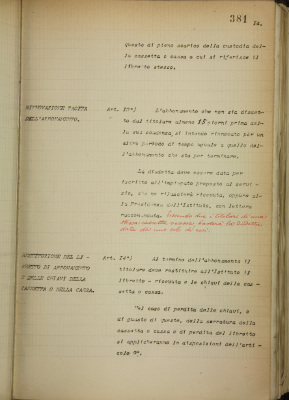 381
14.
questo di pieno scarico della custodia del-
la cassetta o cassa a cui si riferisce il
libretto stesso.
RINNOVAZIONE TACITA
DELL'ABBONAMENTO.
Art. 13°) L'abbonamento che non sia disdet-
to dal titolare almeno 15 giorni prima del-
la sua scadenza si intende rinnovato per un
altro periodo di tempo uguale a quello del-
l'abbonamento che sta per terminare.
La disdetta deve essere data per
iscritto all'impiegato preposto al servi-
zio, che ne rilascierà ricevuta, oppure al-
la Direzione dell'Istituto, con lettera
raccomandata.
RESTITUZIONE DEL LI-
BRETTO DI ABBONAMENTO
E DELLE CHIAVI DELLA
CASSETTA O DELLA CASSA.
Art. 14°) Al termine dell'abbonamento il
titolare deve restituire all'Istituto il
libretto - ricevuta e le chiavi della cas-
setta o cassa.
In caso di perdita delle chiavi, o
di guasto di queste, della serratura della
cassetta o cassa o di perdita del libretto
si applicheranno le disposizioni dell'arti-
colo 9°.